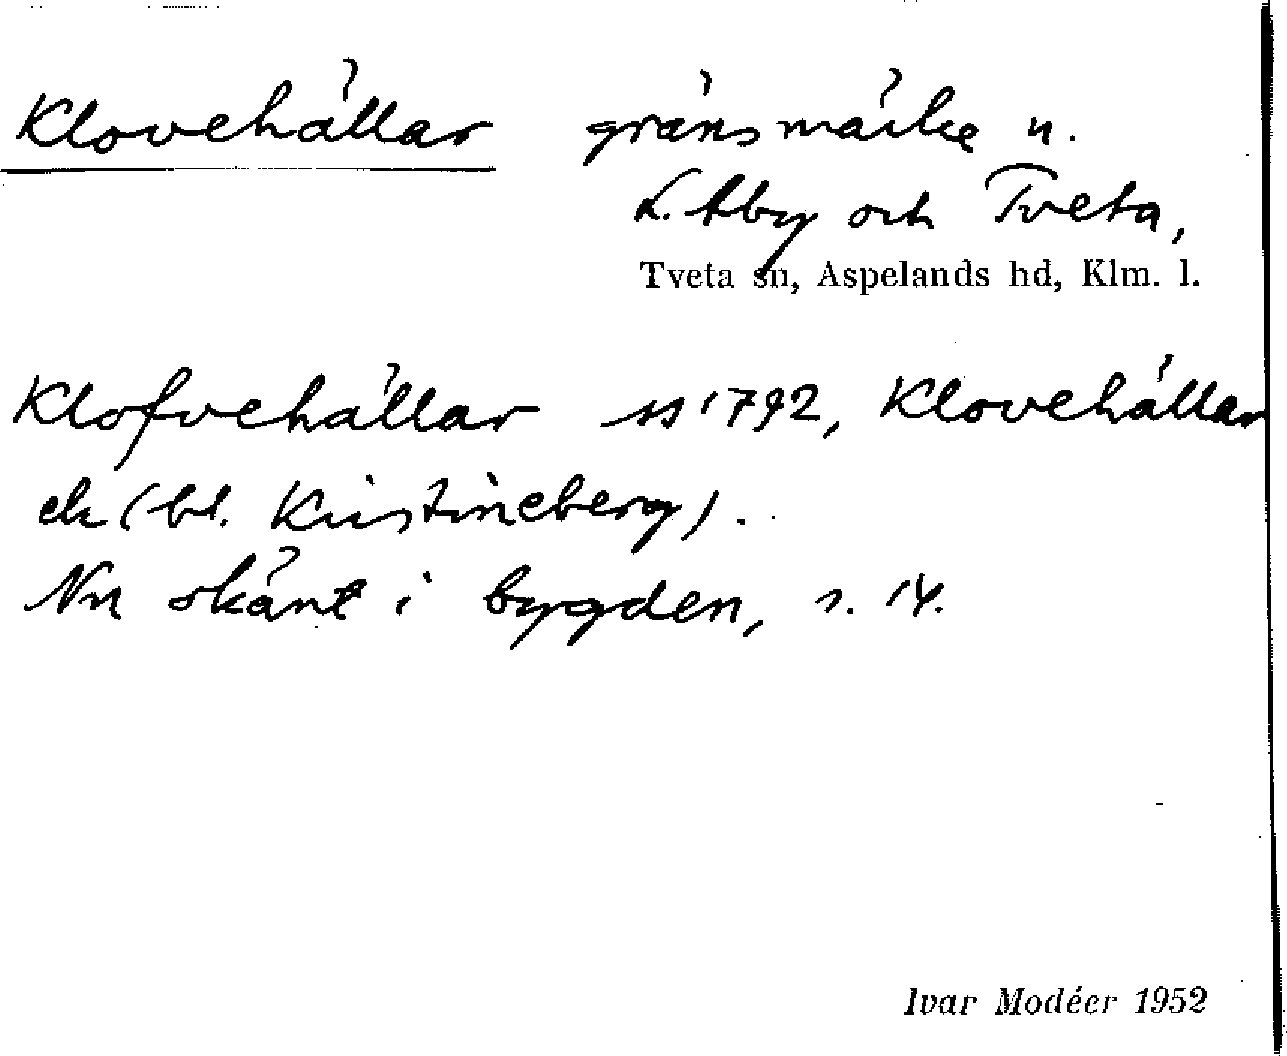 Klovehällar gränsmärke u.
L. Åby och Tveta,
Tveta sn, Aspelands hd, Klm. l.
Klofvehällar ss 1792, Klovehällar
ek (bl. Kristineberg).
Nu okänt i bygden, s. 14.
Ivar Modéer 1952